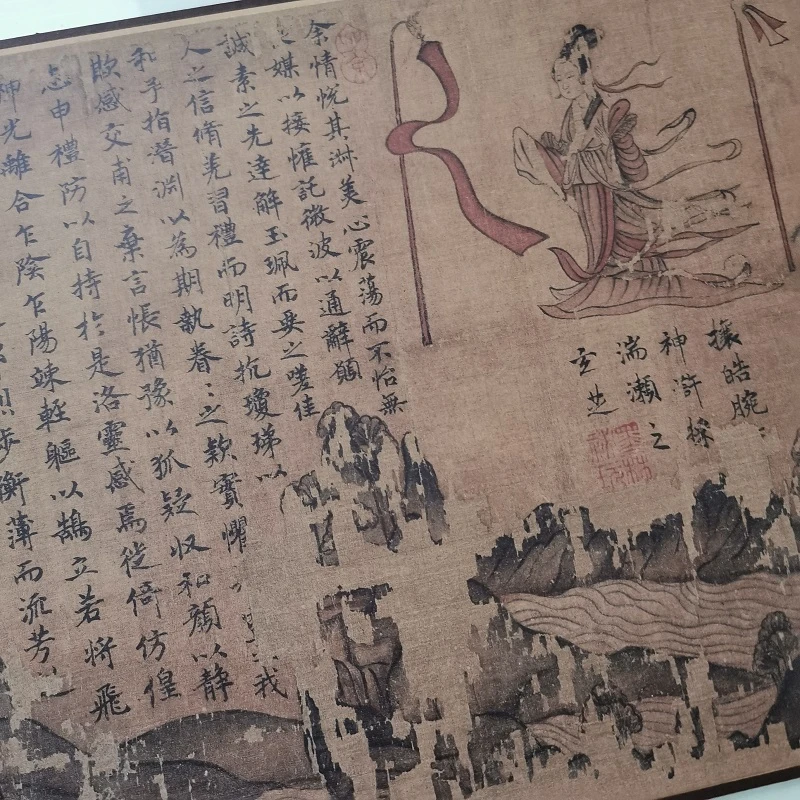 攘皓腕:
神滸採
湍瀬之
玄芝
余情悦其淋美心震蕩而不怡無
媒以接懽託微波以通辭願
誠素之先達解玉珮而要之嗟佳
人之信脩羌習禮而明詩抗瓊珶以
和予指潜淵以為期執眷:之款實懼我
欺感交甫之棄言悵猶豫以狐疑収和顔以静
志申禮防以自持扵是洛靈感焉徙倚仿偟
神光離合乍陰乍陽竦輕軀以鵠立若將飛
步衡薄而流芳